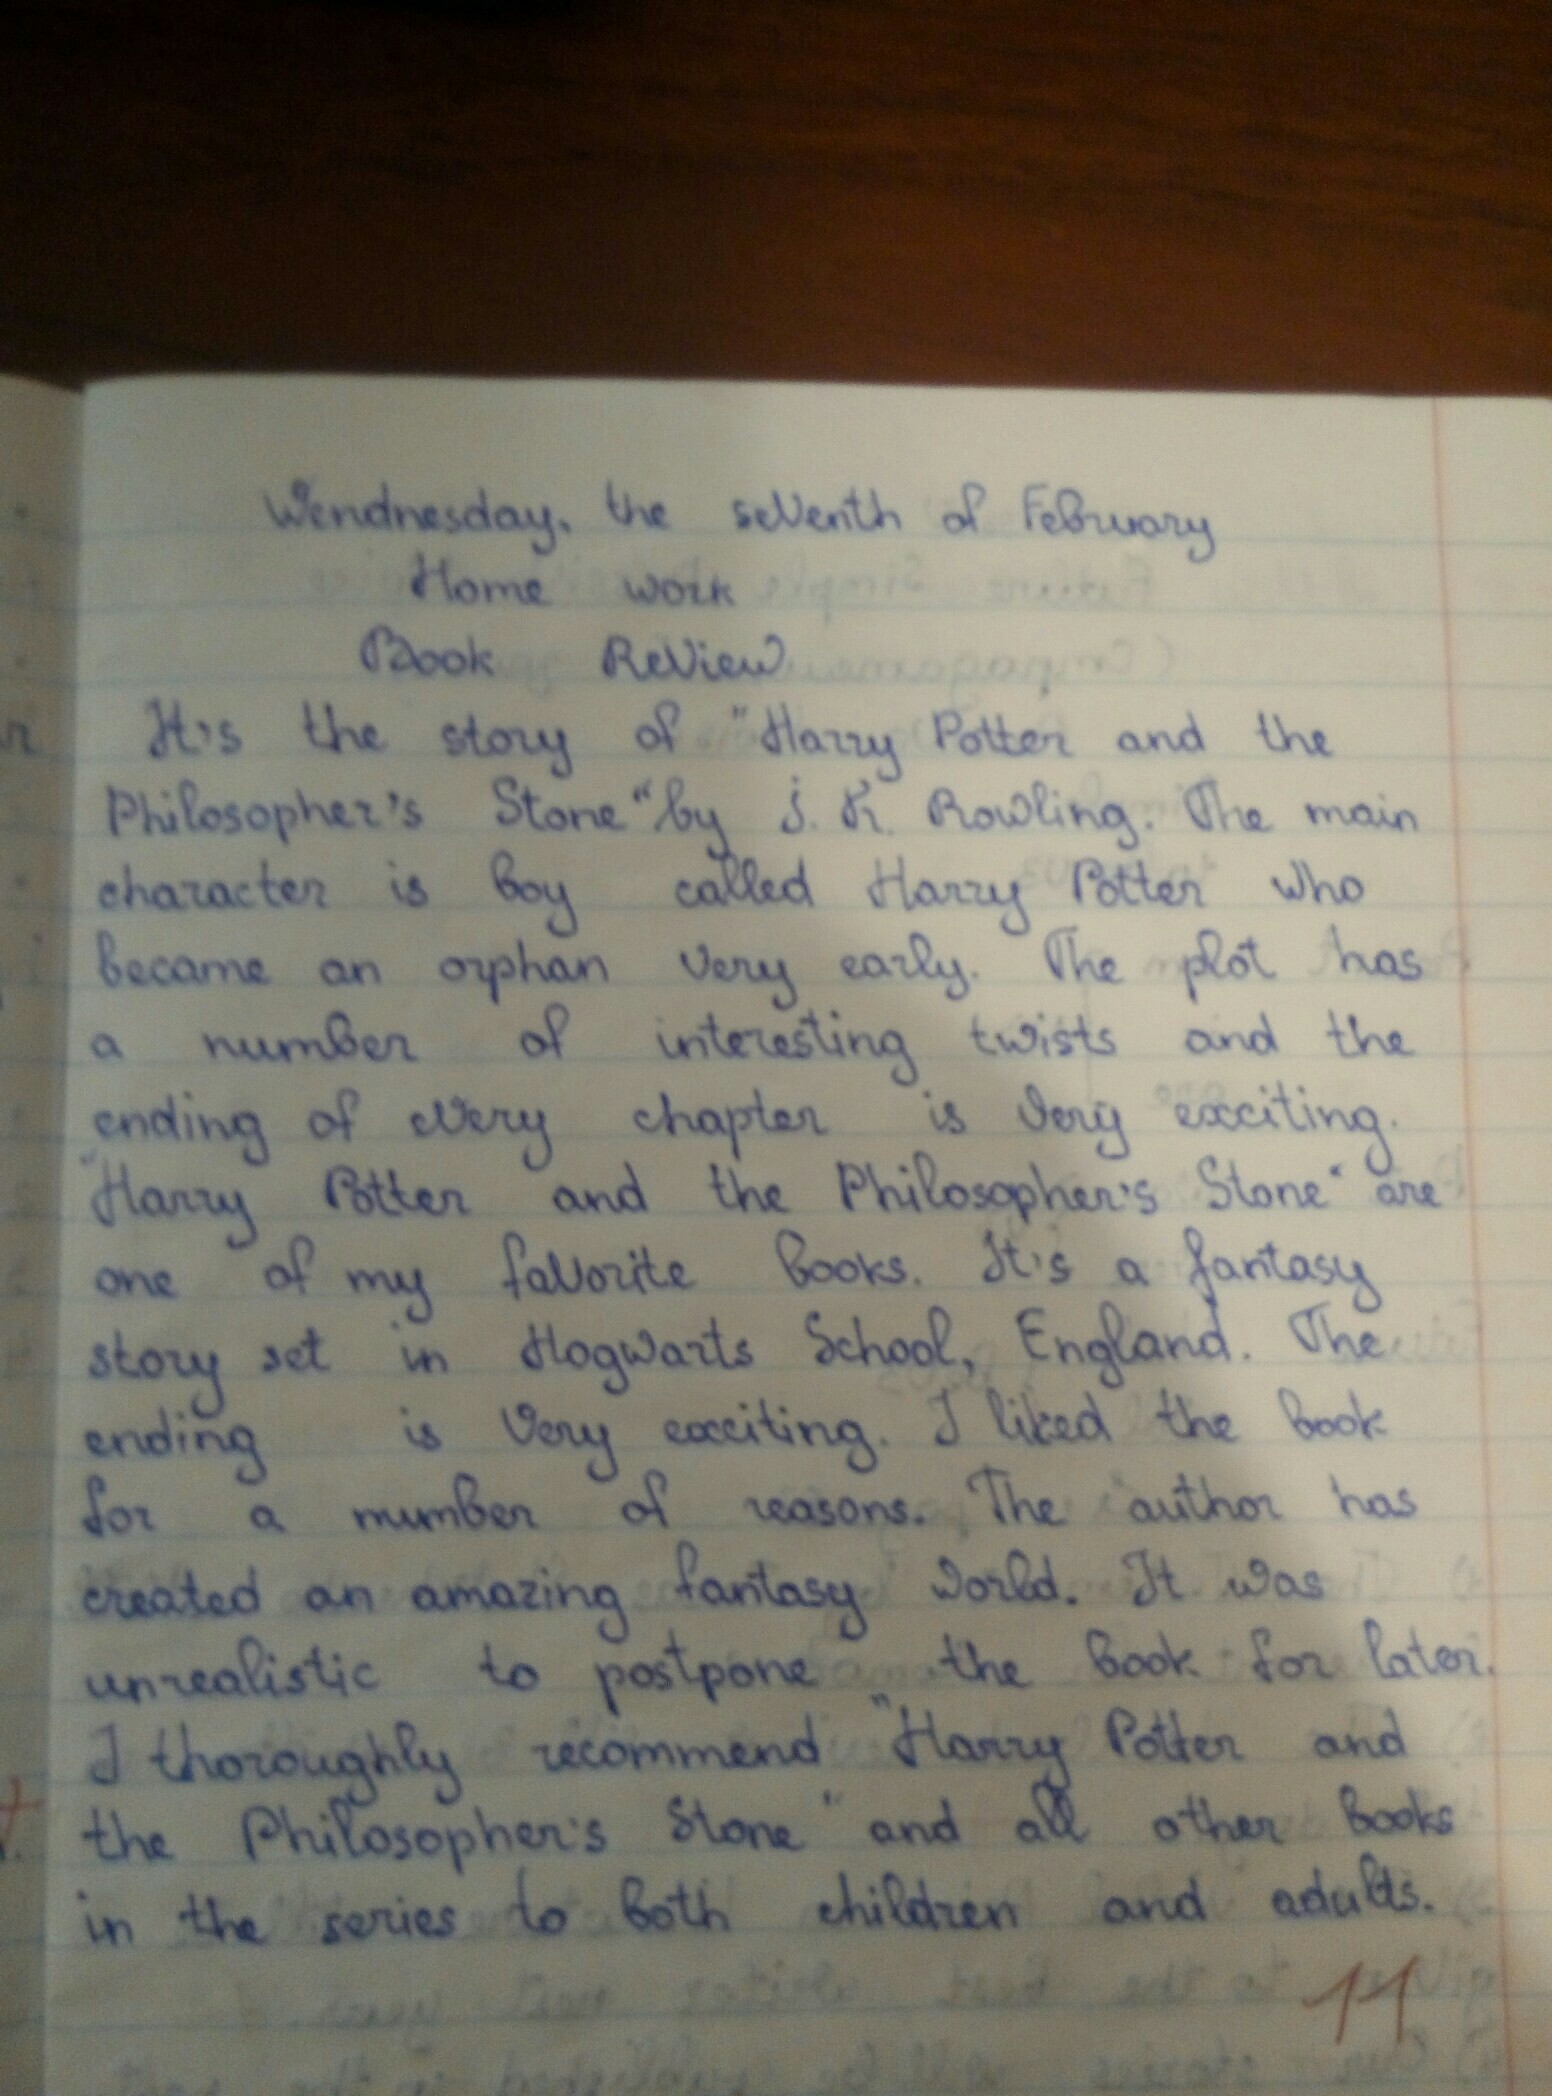 Wendnesday, the seventh of February
Home work
Book Review
It's the story of "Harry Potter and the
Philosopher's Stone" by J. K. Rowling. The main
character is boy called Harry Potter who
became an orphan very early. The plot has
a number of interesting twists and the
ending of every chapter is very exciting.
"Harry Potter and the Philosopher's Stone" are
one of my favorite books. It's a fantasy
story set in Hogwarts School, England. The
ending is very exciting. I liked the book
for a number of reasons. The author has
created an amazing fantasy world. It was
unrealistic to postpone the book for later.
I thoroughly recommend "Harry Potter and
the Philosopher's Stone" and all other books
in the series to both children and adults.
11